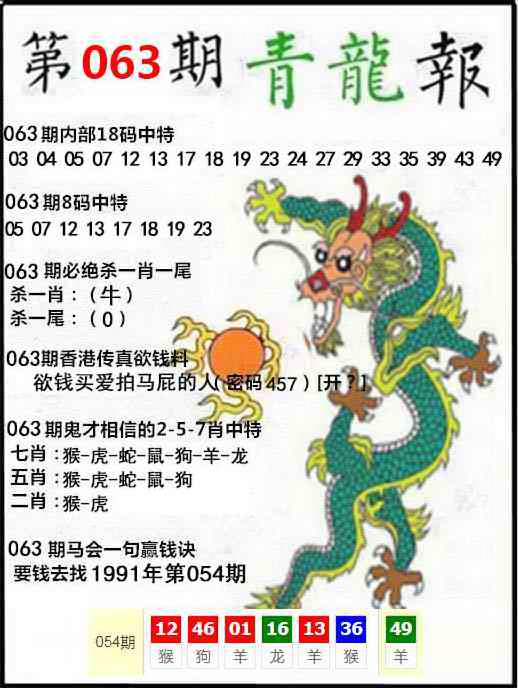 第063期青龍報
063期内部18码中特
03 04 05 07 12 13 17 18 19 23 24 27 29 33 35 39 43 49
063期8码中特
05 07 12 13 17 18 19 23
063 期必绝杀一肖一尾
杀一肖：（牛）
杀一尾：（0）
063期香港传真欲钱料
欲钱买爱拍马屁的人（密码457）[开？]
063期鬼才相信的2-5-7肖中特
七肖：猴-虎-蛇-鼠-狗-羊-龙
五肖：猴-虎-蛇-鼠-狗
二肖：猴-虎
063 期马会一句赢钱诀
要钱去找1991年第054期
054期 12 46 01 16 13 36 49
猴 狗 羊 龙 羊 猴 羊